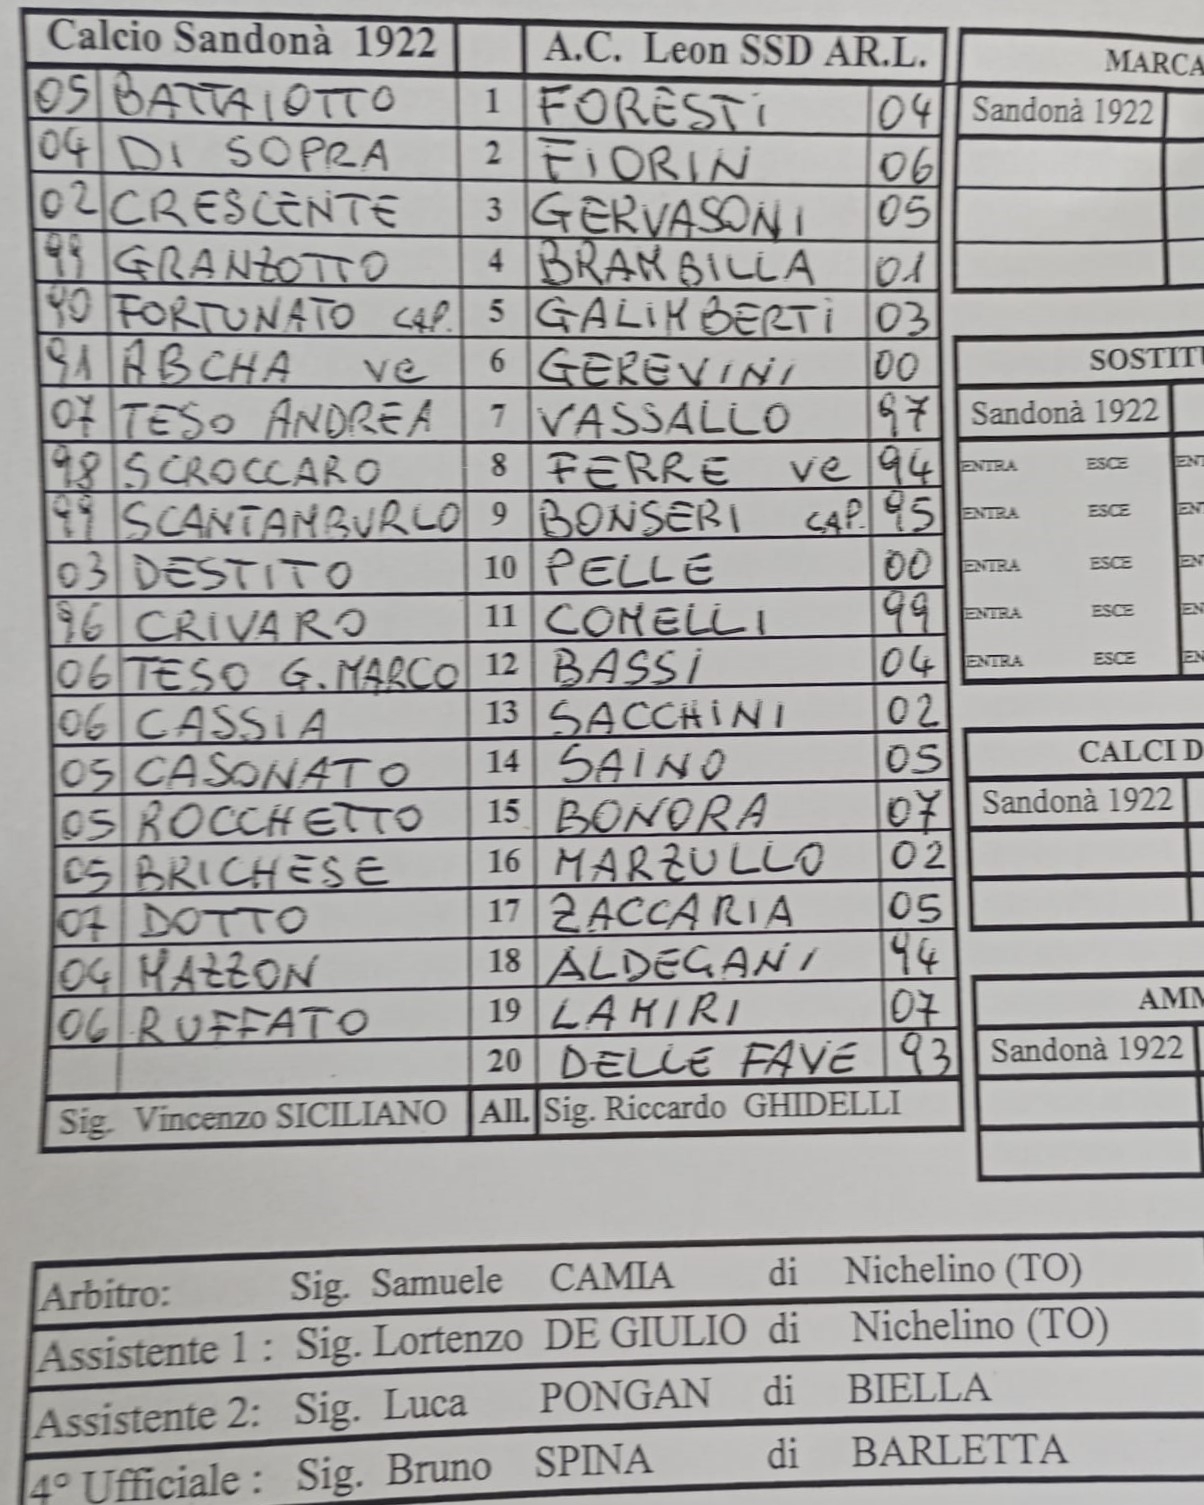 Calcio Sandonà 1922 A.C. Leon SSD AR.L.
05 BATTAIOTTO 1 FORESTI 04
04 DI SOPRA 2 FIORIN 06
02 CRESCENTE 3 GERVASONI 05
99 GRANZOTTO 4 BRAMBILLA 01
90 FORTUNATO CAP. 5 GALIMBERTI 03
91 ABCHA VC 6 GEREVINI 00
07 TESO ANDREA 7 VASSALLO 97
98 SCROCCARO 8 FERRE VC 94
99 SCANTAMBURLO 9 BONSERI CAP. 95
03 DESTITO 10 PELLE 00
96 CRIVARO 11 COMELLI 99
06 TESO G.MARCO 12 BASSI 04
06 CASSIA 13 SACCHINI 02
05 CASONATO 14 SAINO 05
05 ROCCHETTO 15 BONORA 07
05 BRICHESE 16 MARZULLO 02
07 DOTTO 17 ZACCARIA 05
04 MAZZON 18 ALDEGANI 94
06 RUFFATO 19 LAMIRI 07
20 DELLE FAVE 93
Sig. Vincenzo SICILIANO All. Sig. Riccardo GHIDELLI
MARCA
Sandonà 1922
SOSTITU
Sandonà 1922
ENTRA ESCE ENT
ENTRA ESCE EN
ENTRA ESCE EN
ENTRA ESCE EN
ENTRA ESCE EN
CALCI D
Sandonà 1922
AMM
Sandonà 1922
Arbitro: Sig. Samuele CAMIA di Nichelino (TO)
Assistente 1 : Sig. Lortenzo DE GIULIO di Nichelino (TO)
Assistente 2: Sig. Luca PONGAN di BIELLA
4° Ufficiale : Sig. Bruno SPINA di BARLETTA